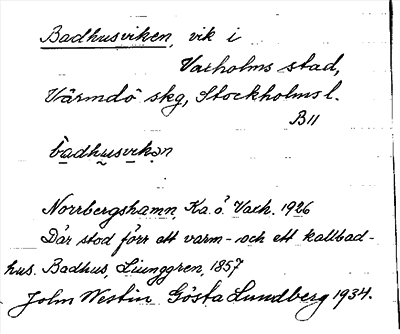 Badhusviken, vik i
Vaxholms stad,
Värmdö skg, Stockholms l.
B11
bàdhusvikən
Norrbergshamn, Ka. ö. Vaxh. 1926
Där stod förr ett varm- och ett kallbad-
hus. Badhus, Ljunggren, 1857
John Westin Gösta Lundberg 1934.